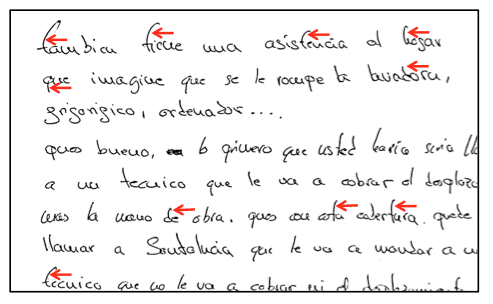 tambien tiene una asistencia al hogar
que imagine que se le rompe la lavadora,
frigorifico, ordenador....
pues bueno, lo primero que usted haria seria ll
a un tecnico que le va a cobrar el desplaza
mas la mano de obra. pues con esta cobertura. puede
llamar a Santalucia que le va a mandar a u
tecnico que no le va a cobrar ni el desplazamient